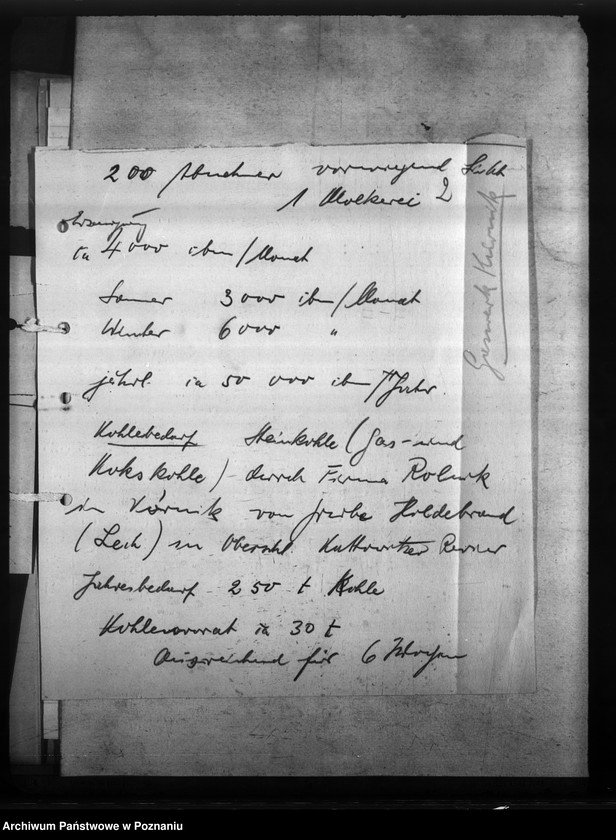 200 Abnehmer vorwiegend Licht
1 Molkerei
Erzeugung
ca 4000 cbm/Monat
Sommer 3000 cbm/Monat
Winter 6000 "
jährl. ca 50 000 cbm/Jahr.
Kohlebedarf Steinkohle (Gas- und
Kokskohle) durch Firma Rolnik
in Kórnik von Grube Hildebrand
(Lech) in Oberschl. Kattowitzer Revier
Jahresbedarf 250 t Kohle
Kohlenvorrat ca 30 t
Ausreichend für 6 Wochen
Gaswerk Kurnik
Archiwum Państwowe w Poznaniu